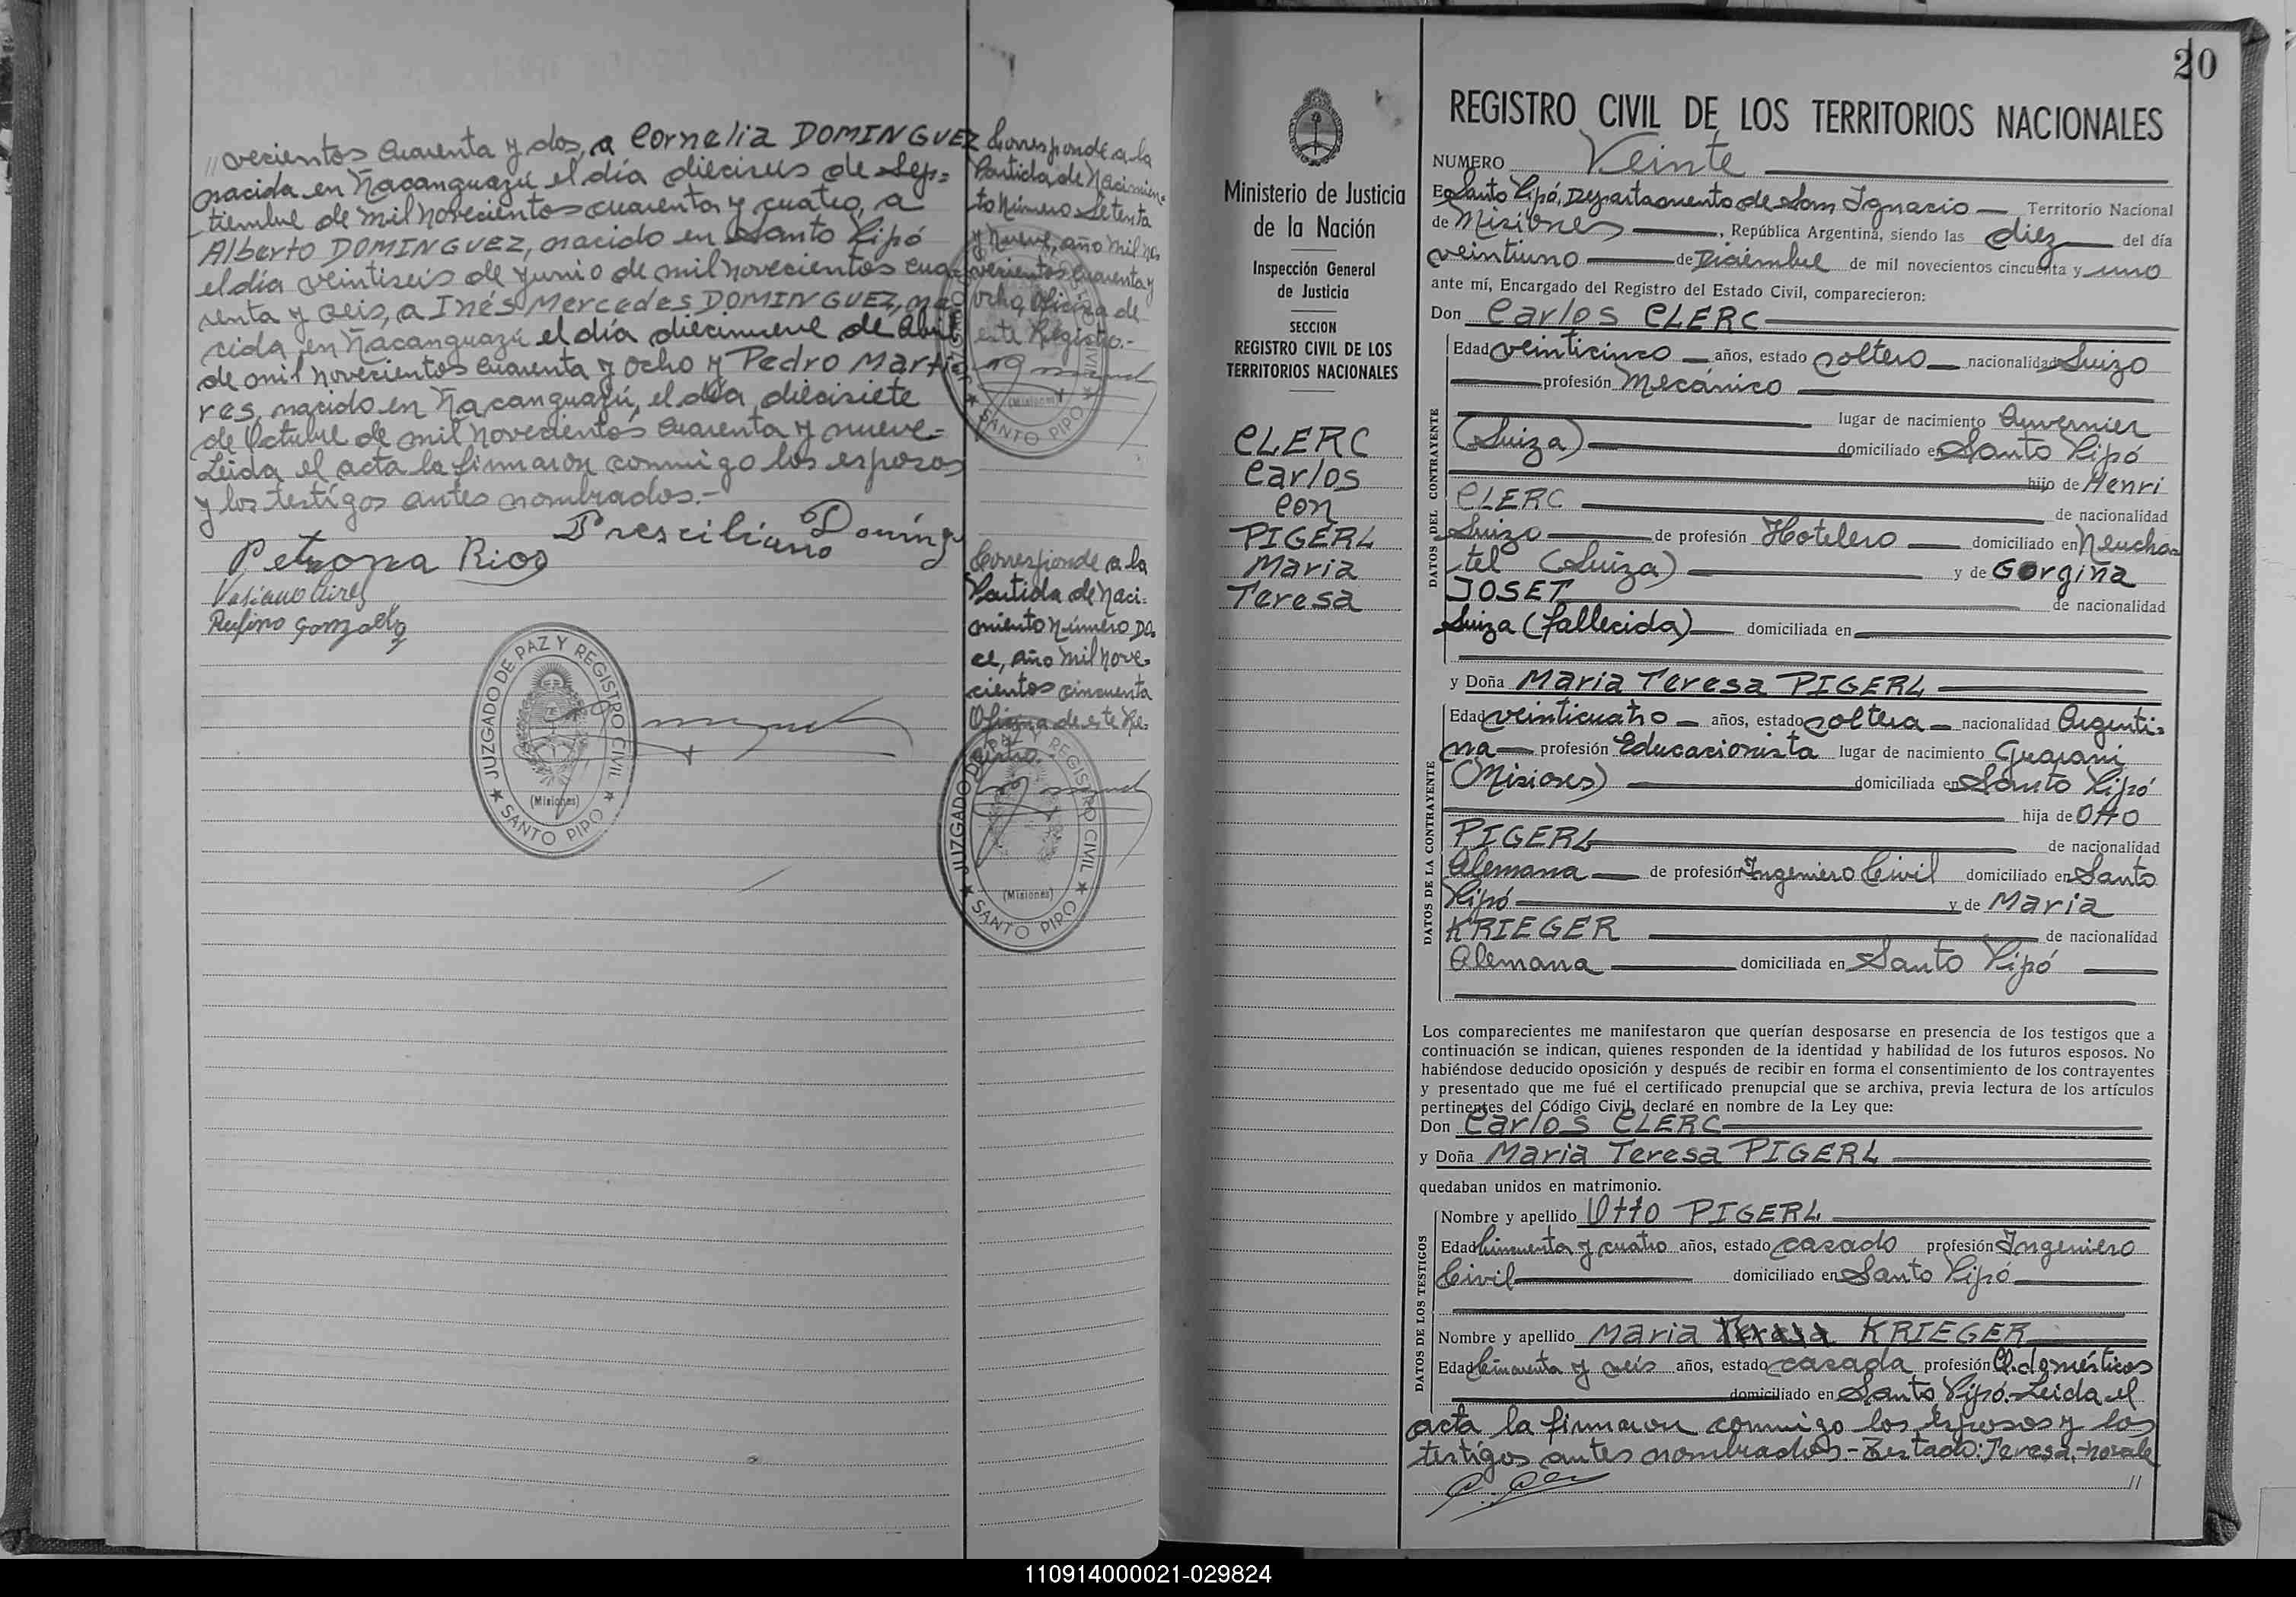 //vecientos cuarenta y dos, a Cornelia DOMINGUEZ
nacida en Ñacanguazú el día dieciseis de Sep=
tiembre de mil novecientos cuarenta y cuatro, a
Alberto DOMINGUEZ, nacido en Santo Pipó
el día veintiseis de Junio de mil novecientos cua=
renta y seis, a Inés Mercedes DOMINGUEZ, na=
cida en Ñacanguazú el día diecinueve de Abril
de mil novecientos cuarenta y ocho y Pedro Marti
res, nacido en Ñacanguazú, el día diecisiete
de Octubre de mil novecientos cuarenta y nueve=
Leida el acta la firmaron conmigo los esposos
y los testigos antes nombrados.-
Presciliano Doming
Petrona Rios
Rufino Gonzalez
JUZGADO DE PAZ Y REGISTRO CIVIL
(Misiones)
SANTO PIPO
Corresponde a la
Partida de Nacimien=
to Número Setenta
y nueve, año mil no
vecientos cuarenta y
ocho, Oficina de
este Registro.-
(Misiones)
SANTO PIPO
Corresponde a la
Partida de Naci=
miento número Do=
ce, año mil nove=
cientos cincuenta
Oficina de este Re=
gistro.
JUZGADO DE PAZ Y REGISTRO CIVIL
(Misiones)
SANTO PIPO
20
Ministerio de Justicia
de la Nación
Inspección General
de Justicia
SECCION
REGISTRO CIVIL DE LOS
TERRITORIOS NACIONALES
CLERC
Carlos
con
PIGERL
Maria
Teresa
REGISTRO CIVIL DE LOS TERRITORIOS NACIONALES
NUMERO Veinte
En Santo Pipó, Departamento de San Ignacio Territorio Nacional
de Misiones, República Argentina, siendo las diez del día
veintiuno de Diciembre de mil novecientos cincuenta y uno
ante mí, Encargado del Registro del Estado Civil, comparecieron:
Don Carlos CLERC
DATOS DEL CONTRAYENTE
Edad veinticinco años, estado soltero nacionalidad Suizo
profesión Mecánico
lugar de nacimiento Auvernier
(Suiza) domiciliado en Santo Pipó
hijo de Henri
CLERC de nacionalidad
Suizo de profesión Hotelero domiciliado en Neucha=
tel (Suiza) y de Gorgina
JOSET de nacionalidad
Suiza (fallecida) domiciliada en
y Doña Maria Teresa PIGERL
DATOS DE LA CONTRAYENTE
Edad veinticuatro años, estado soltera nacionalidad Argenti=
na profesión Educacionista lugar de nacimiento Guarani
(Misiones) domiciliada en Santo Pipó
hija de Otto
PIGERL de nacionalidad
Alemana de profesión Ingeniero Civil domiciliado en Santo
Pipó y de Maria
KRIEGER de nacionalidad
Alemana domiciliada en Santo Pipó
Los comparecientes me manifestaron que querían desposarse en presencia de los testigos que a
continuación se indican, quienes responden de la identidad y habilidad de los futuros esposos. No
habiéndose deducido oposición y después de recibir en forma el consentimiento de los contrayentes
y presentado que me fué el certificado prenupcial que se archiva, previa lectura de los artículos
pertinentes del Código Civil, declaré en nombre de la Ley que:
Don Carlos CLERC
y Doña Maria Teresa PIGERL
quedaban unidos en matrimonio.
DATOS DE LOS TESTIGOS
Nombre y apellido Otto PIGERL
Edad Cincuenta y cuatro años, estado casado profesión Ingeniero
Civil domiciliado en Santo Pipó
Nombre y apellido Maria Teresa KRIEGER
Edad Cincuenta y seis años, estado casada profesión Q. domésticos
domiciliado en Santo Pipó.-Leida el
acta la firmaron conmigo los esposos y los
testigos antes nombrados.-Testado: Teresa.-no vale
//
110914000021-029824